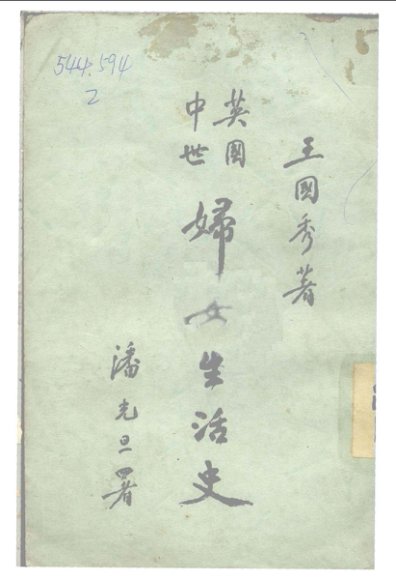 544.594
2
王國秀著
英國
中世
婦女生活史
潘光旦署